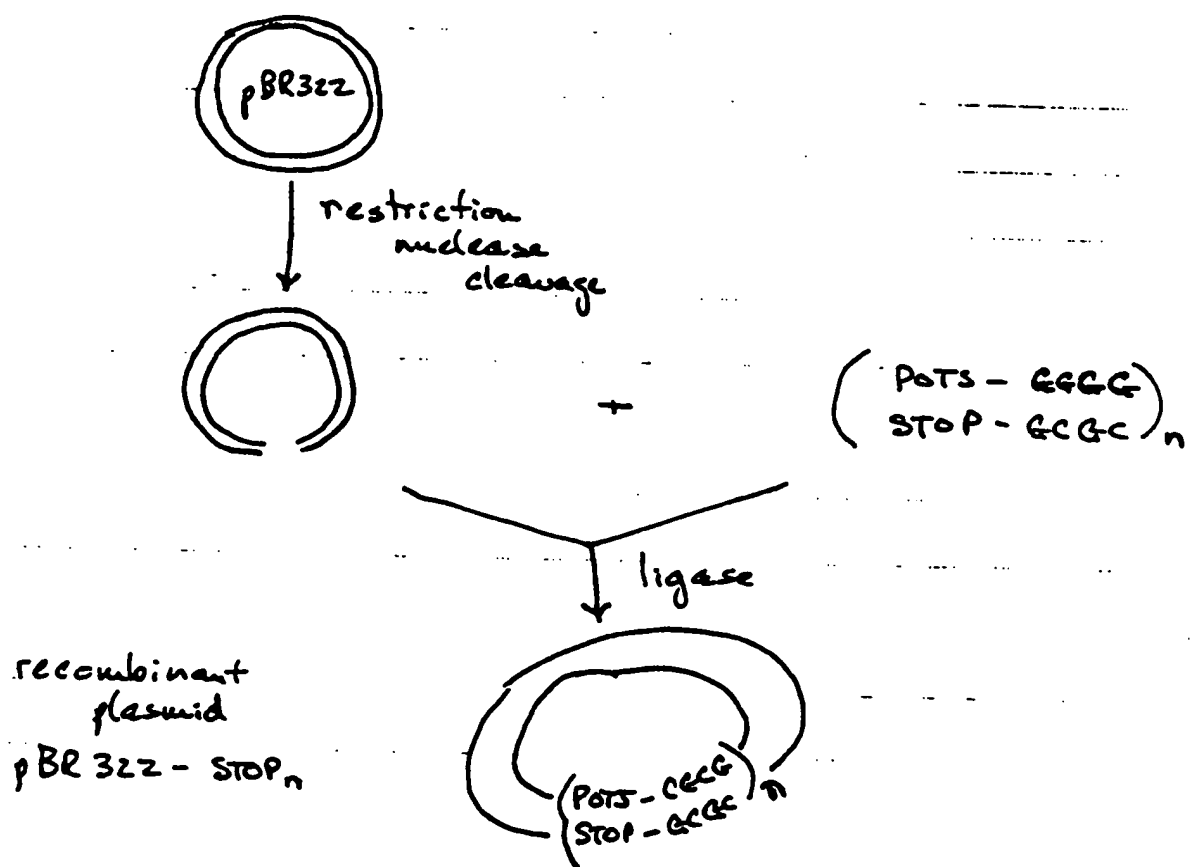 pBR322
restriction
nuclease
cleavage
+
( POTS - GGGG
STOP - GCGC )n
ligase
recombinant
plasmid
pBR 322 - STOPn
( POTS - CGCG
STOP - GCGC )n